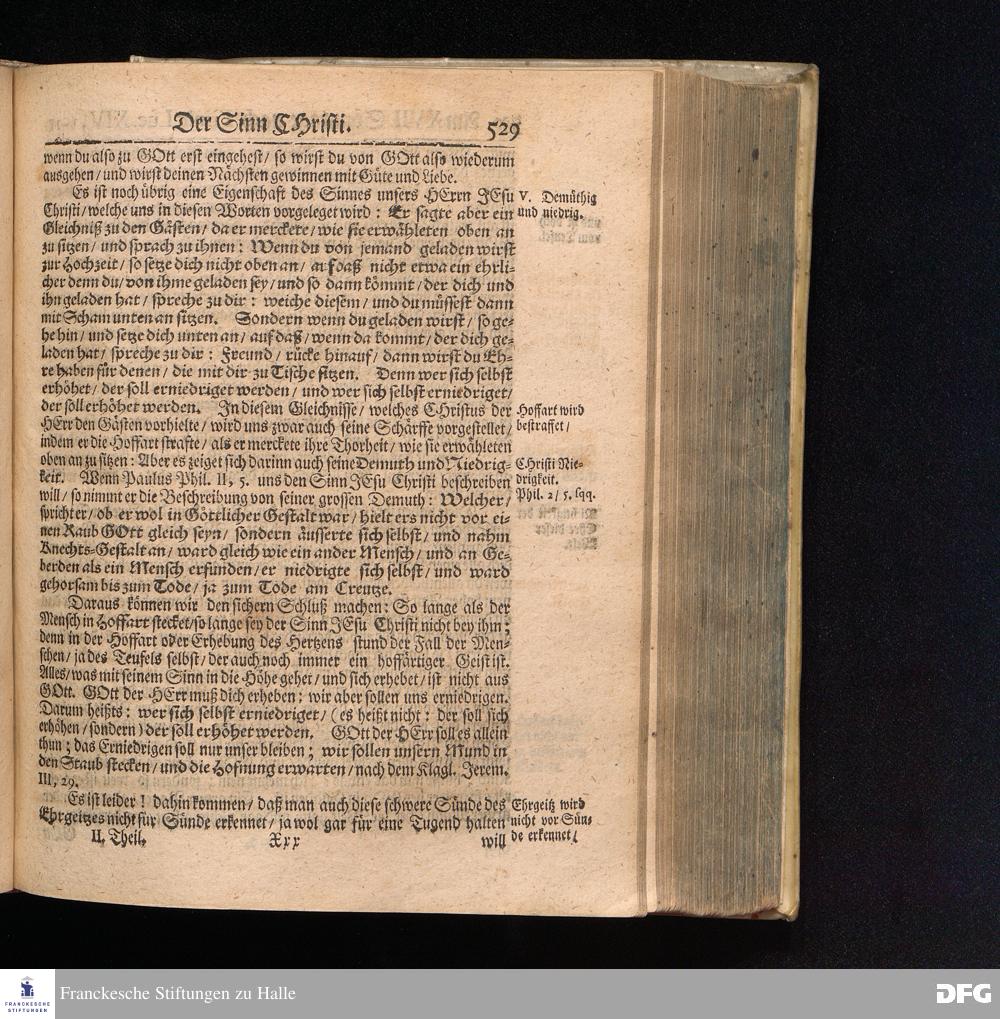 Der Sinn CHristi.
529
wenn du also zu GOtt erst eingehest/ so wirst du von GOtt also wiederum
ausgehen/ und wirst deinen Nächsten gewinnen mit Güte und Liebe.
Es ist noch übrig eine Eigenschaft des Sinnes unsers HErrn JEsu
Christi/ welche uns in diesen Worten vorgeleget wird: Er sagte aber ein
Gleichniß zu den Gästen/ da er merckete/ wie sie erwähleten oben an
zu sitzen/ und sprach zu ihnen: Wenn du von jemand geladen wirst
zur Hochzeit/ so setze dich nicht oben an/ auf daß nicht etwa ein ehrli-
cher denn du/ von ihme geladen sey/ und so dann kömmt/ der dich und
ihn geladen hat/ spreche zu dir: weiche diesem/ und du müssest dann
mit Scham unten an sitzen. Sondern wenn du geladen wirst/ so ge-
he hin/ und setze dich unten an/ auf daß/ wenn da kommt/ der dich ge-
laden hat/ spreche zu dir: Freund/ rücke hinauf/ dann wirst du Eh-
re haben für denen/ die mit dir zu Tische sitzen. Denn wer sich selbst
erhöhet/ der soll erniedriget werden/ und wer sich selbst erniedriget/
der soll erhöhet werden. In diesem Gleichnisse/ welches CHristus der
HErr den Gästen vorhielte/ wird uns zwar auch seine Schärffe vorgestellet/
indem er die Hoffart strafte/ als er merckete ihre Thorheit/ wie sie erwähleten
oben an zu sitzen: Aber es zeiget sich darinn auch seine Demuth und Niedrig-
keit. Wenn Paulus Phil. II, 5. uns den Sinn JEsu Christi beschreiben
will/ so nimmt er die Beschreibung von seiner grossen Demuth: Welcher/
spricht er/ ob er wol in Göttlicher Gestalt war/ hielt ers nicht vor ei-
nen Raub GOtt gleich seyn/ sondern äusserte sich selbst/ und nahm
Knechts-Gestalt an/ ward gleich wie ein ander Mensch/ und an Ge-
berden als ein Mensch erfunden/ er niedrigte sich selbst/ und ward
gehorsam bis zum Tode/ ja zum Tode am Creutze.
Daraus können wir den sichern Schluß machen: So lange als der
Mensch in Hoffart stecket/ so lange sey der Sinn JEsu Christi nicht bey ihm;
denn in der Hoffart oder Erhebung des Hertzens stund der Fall der Men-
schen/ ja des Teufels selbst/ der auch noch immer ein hoffärtiger Geist ist.
Alles/ was mit seinem Sinn in die Höhe gehet/ und sich erhebet/ ist nicht aus
GOtt. GOtt der HErr muß dich erheben: wir aber sollen uns erniedrigen.
Darum heißts: wer sich selbst erniedriget/ (es heißt nicht: der soll sich
erhöhen/ sondern) der soll erhöhet werden. GOtt der HErr soll es allein
thun; das Erniedrigen soll nur unser bleiben; wir sollen unsern Mund in
den Staub stecken/ und die Hofnung erwarten/ nach dem Klagl. Jerem.
III, 29.
Es ist leider! dahin kommen/ daß man auch diese schwere Sünde des
Ehrgeitzes nicht für Sünde erkennet/ ja wol gar für eine Tugend halten
II. Theil.
Xxx
will
V. Demüthig
und niedrig.
Hoffart wird
bestraffet/
Christi Nie-
drigkeit.
Phil. 2/ 5. sqq.
Ehrgeitz wird
nicht vor Sün-
de erkennet/
FRANCKESCHE
STIFTUNGEN
Franckesche Stiftungen zu Halle
DFG